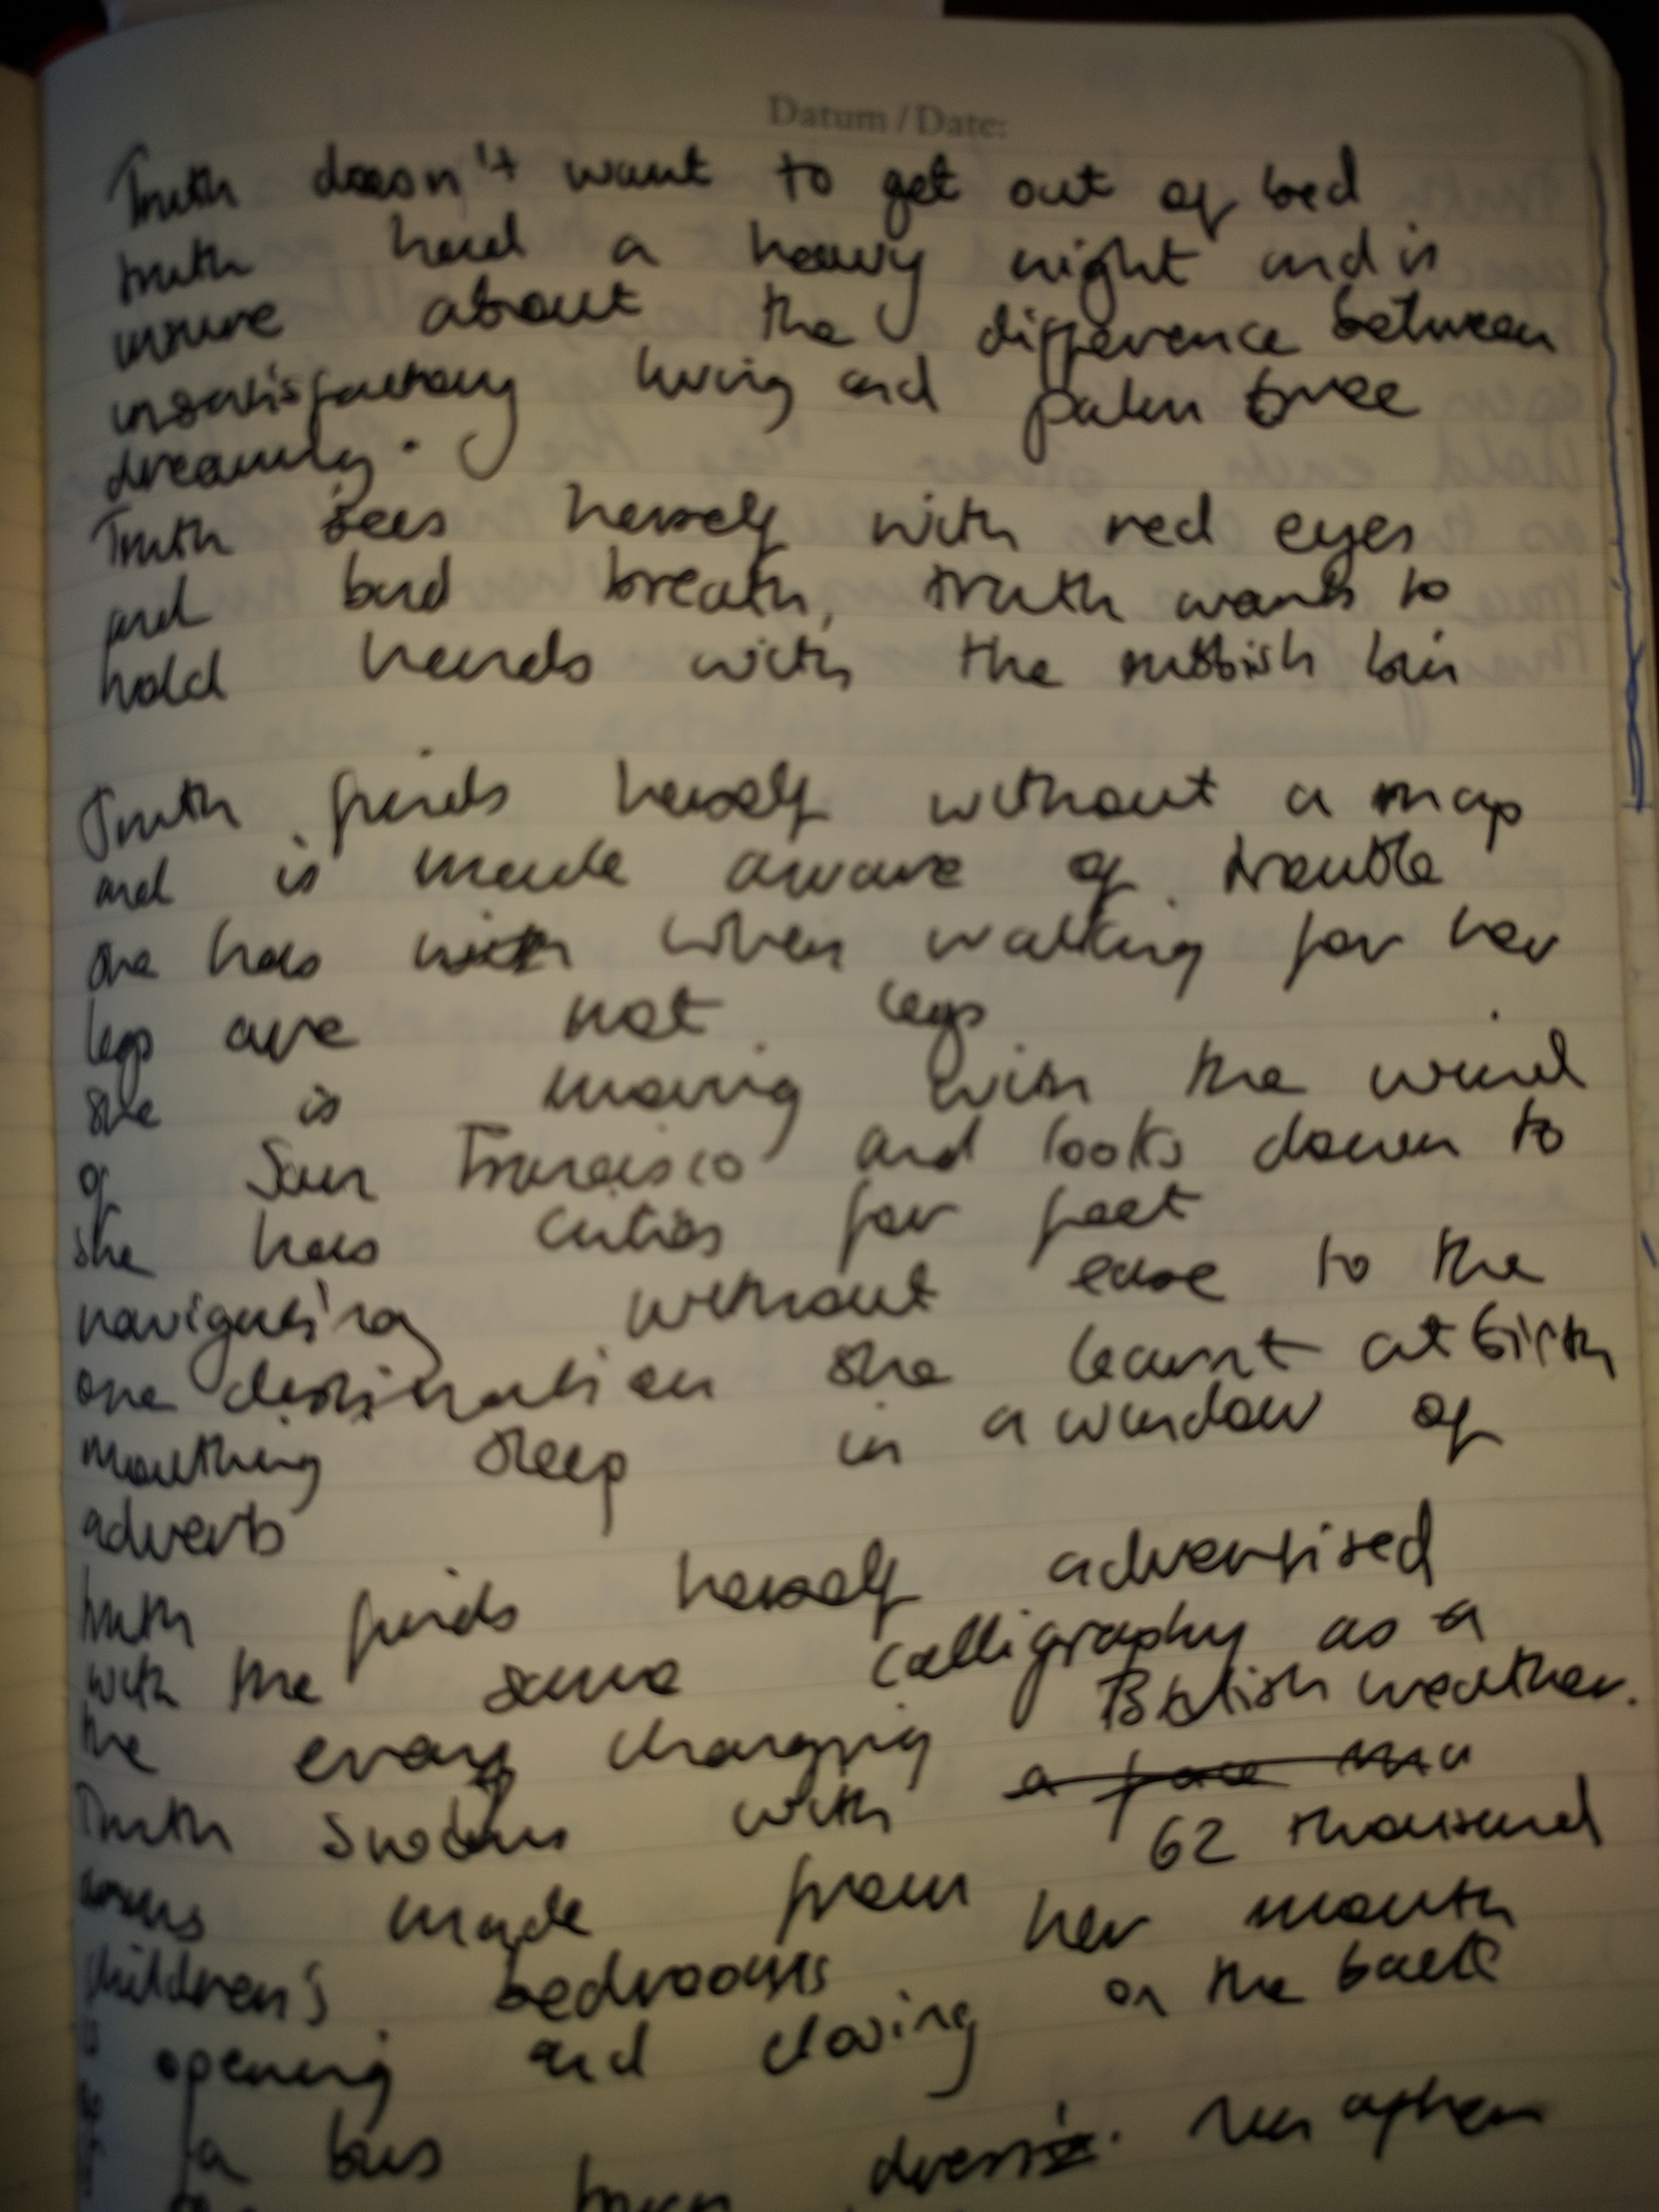 Datum / Date:
Truth doesn't want to get out of bed
truth had a heavy night and is
unsure about the difference between
unsatisfactory living and palm tree
dreaming.
Truth sees herself with red eyes
and bad breath, truth wants to
hold hands with the rubbish bin
Truth finds herself without a map
and is made aware of trouble
she has when walking for her
legs are not legs
she is moving with the wind
of San Francisco and looks down to
she has cities for feet
navigating without ease to the
one destination she learnt at birth
mouthing sleep in a window of
adverts
truth finds herself advertised
with the same calligraphy as a
the every changing British weather.
Truth with a face
62 thousand
made from her mouth
children's bedrooms
opening and closing on the back
a bus